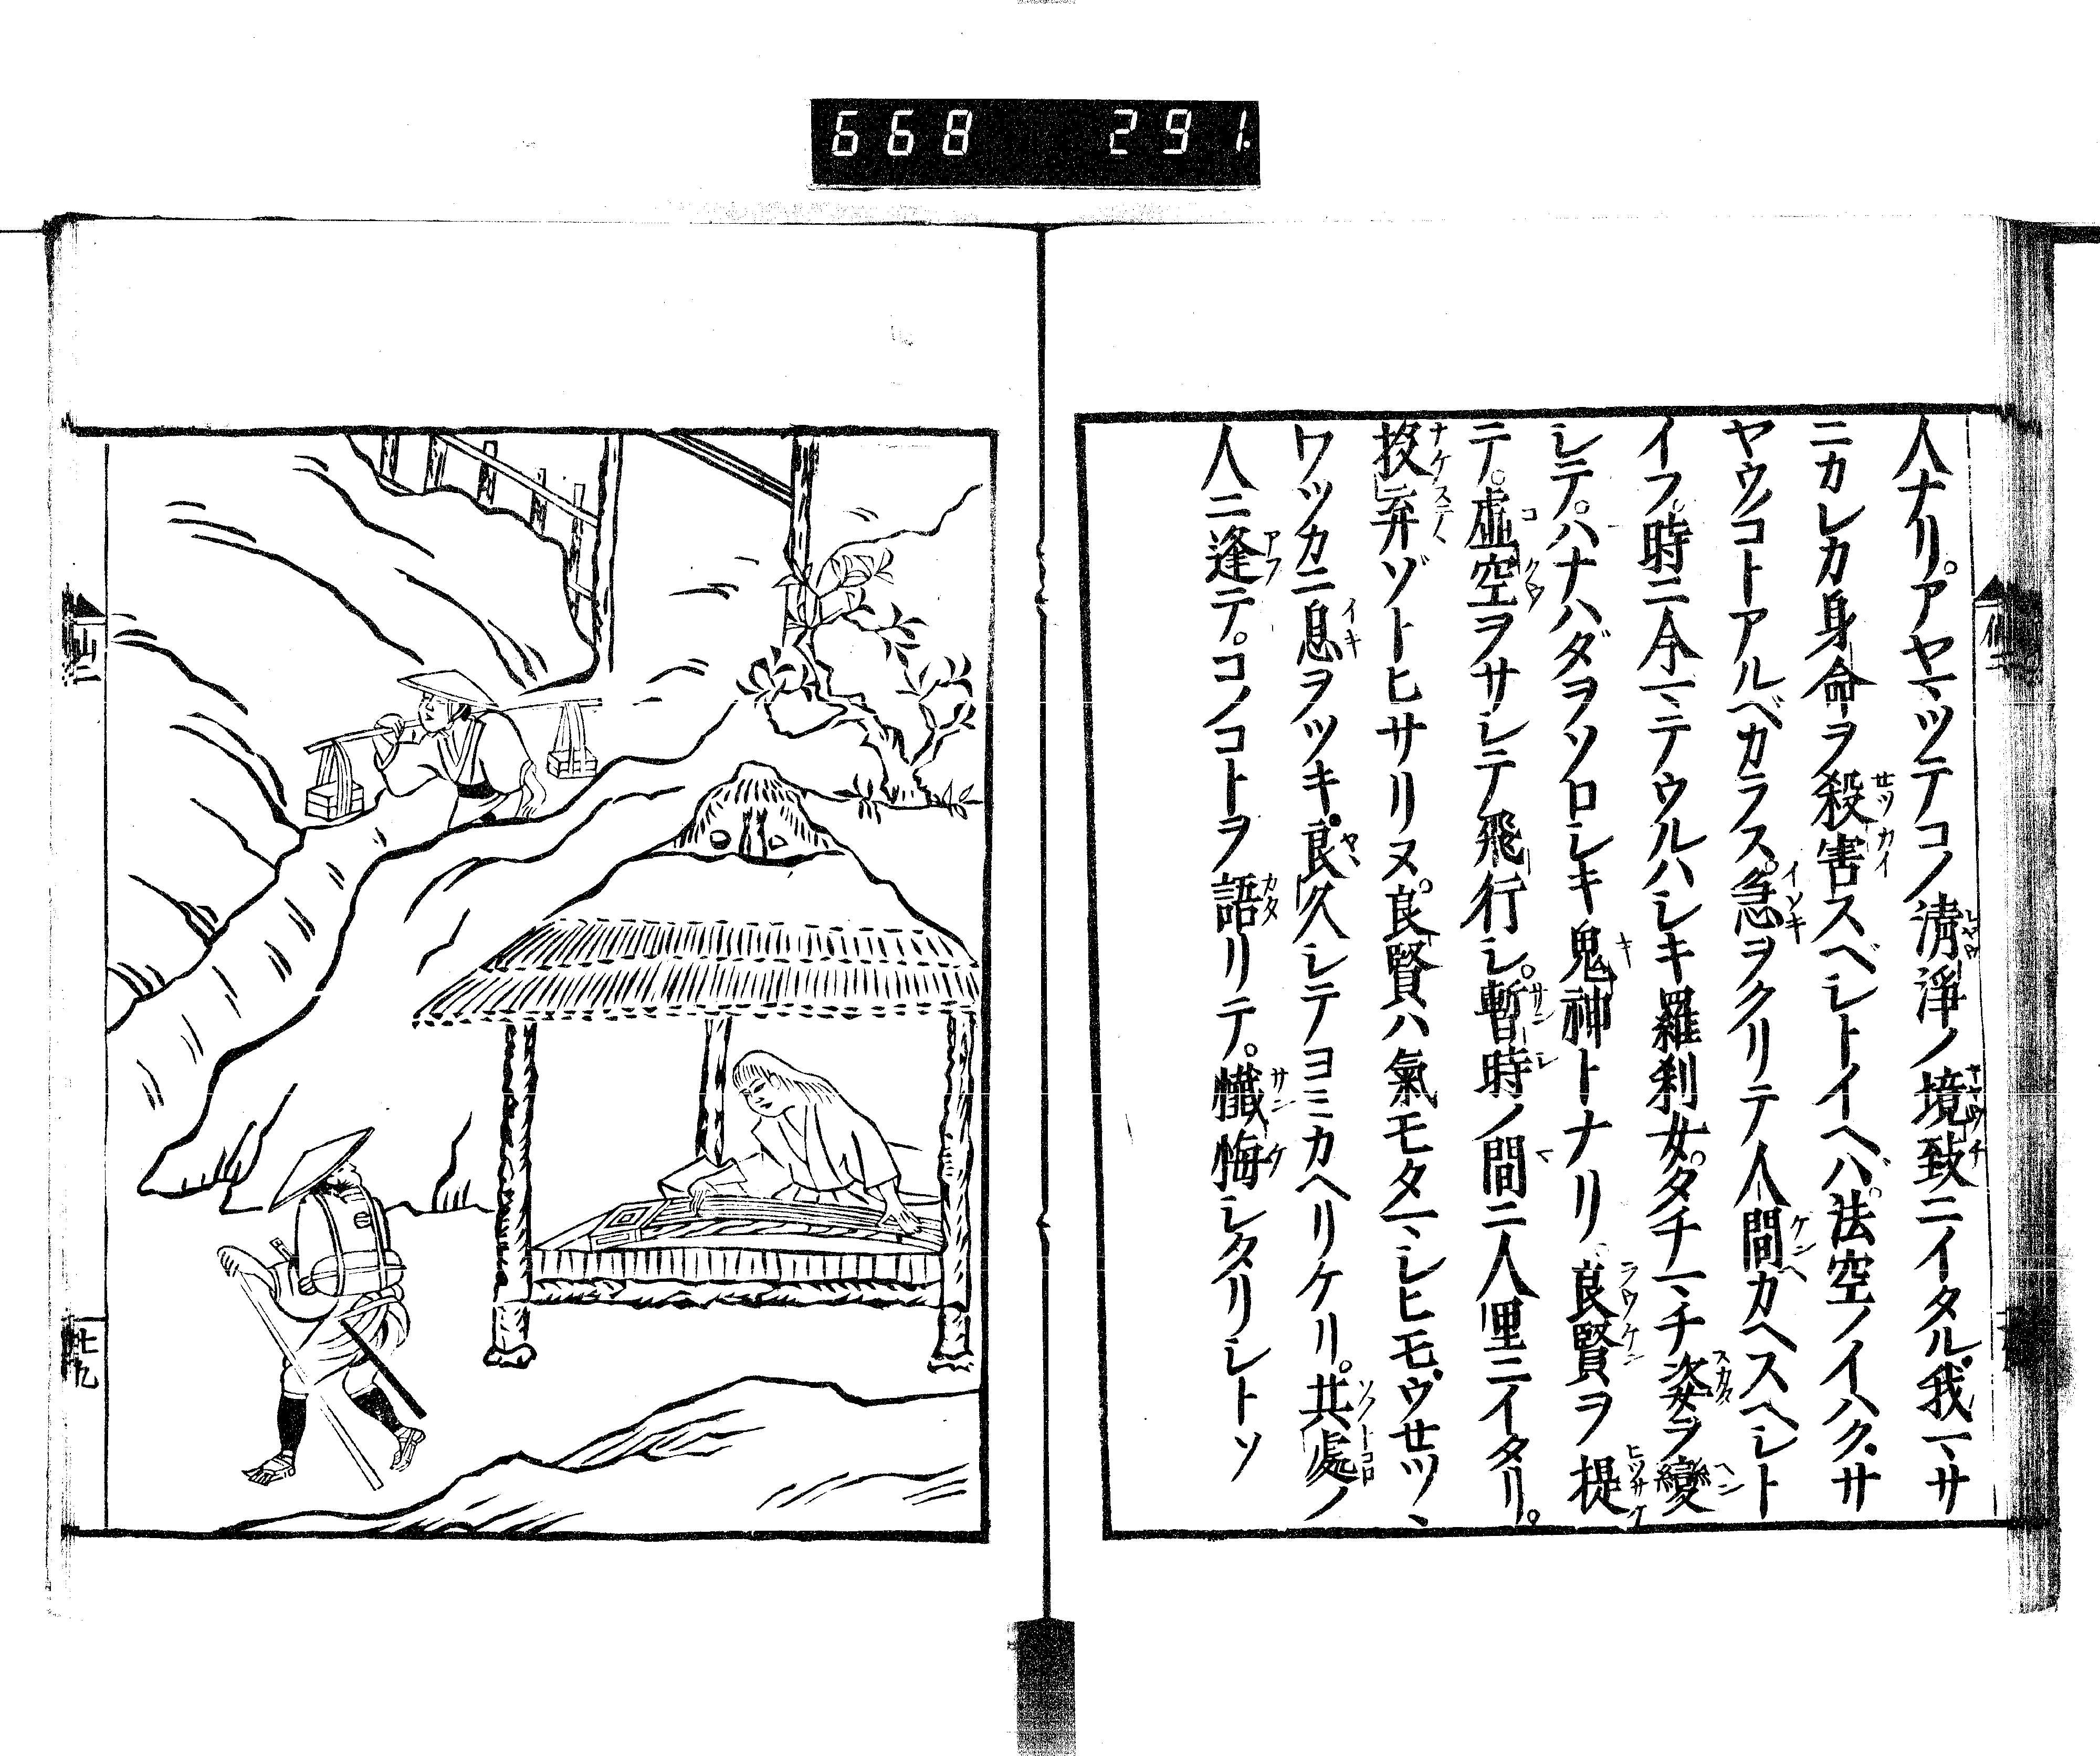 668 291.
人ナリ。アヤマツテコノ清淨ノ境致ニイタル。我マサ
ニカレカ身命ヲ殺害スベシトイヘバ。法空ノイハク。サ
ヤウノコトアルベカラス。急ヲクリテ人間カヘスヘシト
イフ。時ニ今マテウルハシキ羅刹女。タチマチ姿ヲ變
シテ。ハナハダヲソロシキ鬼神トナリ良賢ヲ提
テ。虚空ヲサシテ飛行シ。暫時ノ間ニ人里ニイタリ。
投弃ゾトヒサリヌ。良賢ハ氣モタマシヒモ。ウセツヽ
ワツカニ息ヲツキ。良久シテヨミカヘリケリ。其處ノ
人ニ逢テ。コノコトヲ語リテ。懺悔シタリシトソ